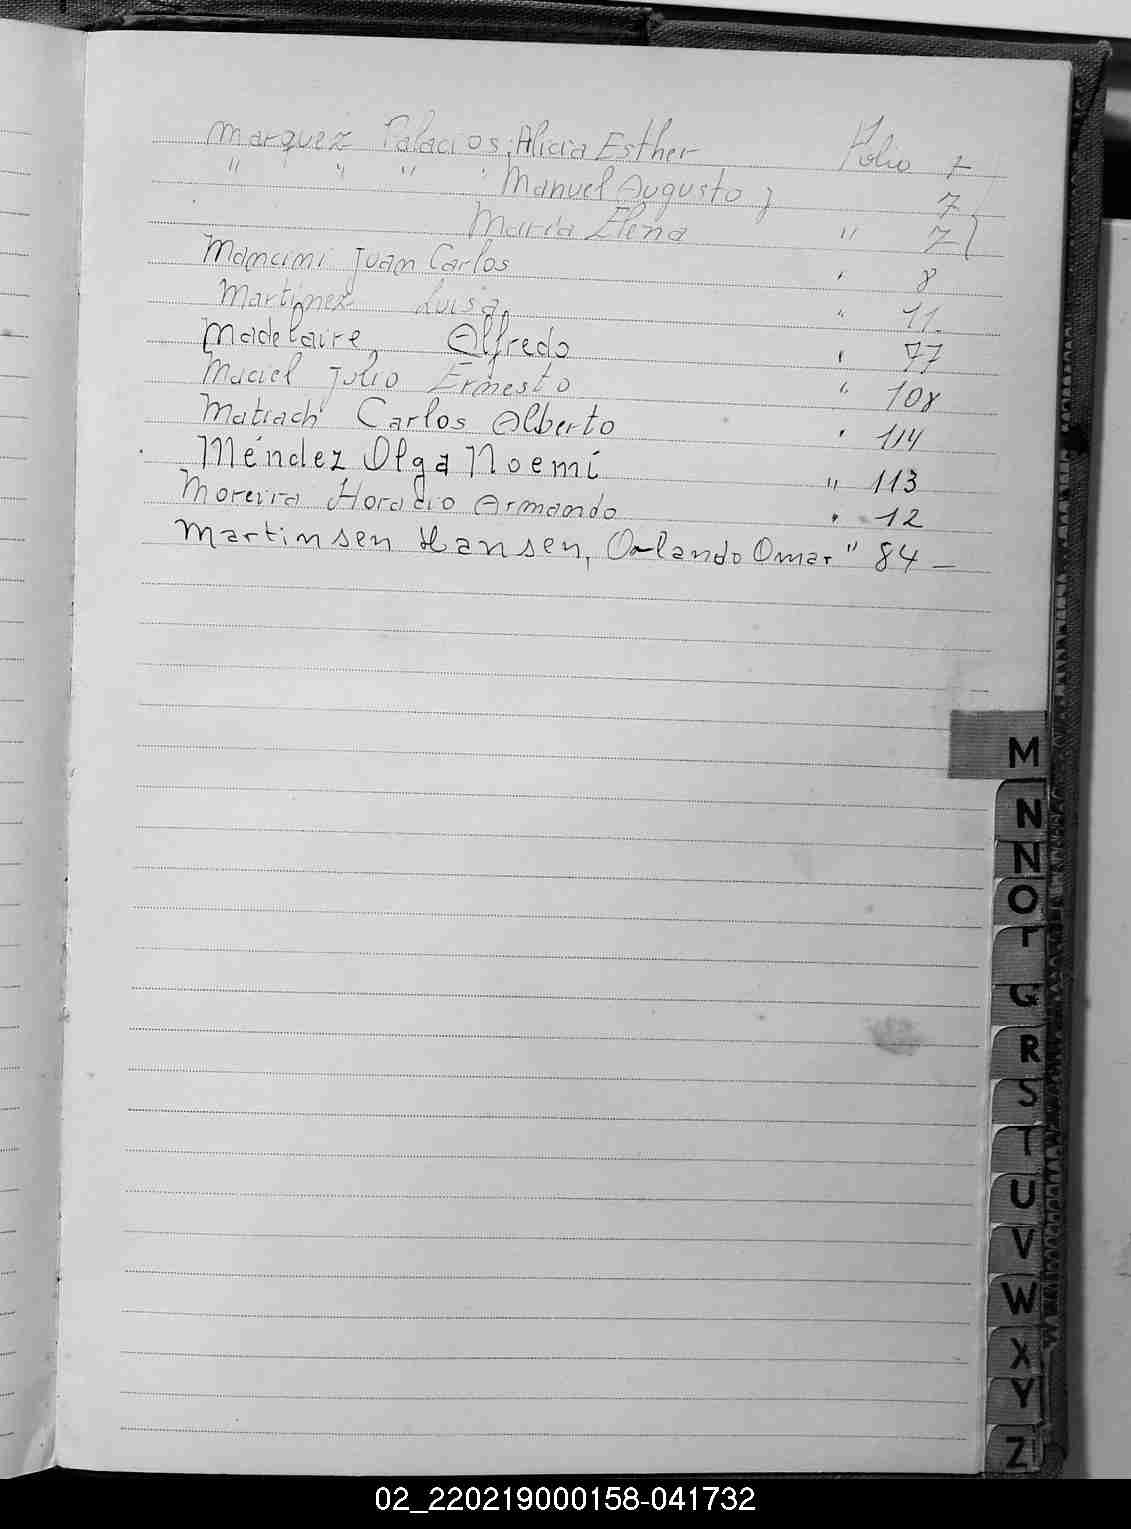 Marquez Palacios, Alicia Esther Folio 7
" " " " Manuel Augusto 7
Maria Elena " 7
Mancini Juan Carlos " 8
Martinez Luisa " 11.
Madelaire, Alfredo " 77
Maciel Julio Ernesto " 108
Matrach Carlos Alberto " 114
Méndez Olga Noemí " 113
Moreira Horacio Armando " 12
Martinsen Hansen, Orlando Omar " 84 —
M
N
N
O
Q
R
S
T
U
V
W
X
Y
Z
02_220219000158-041732